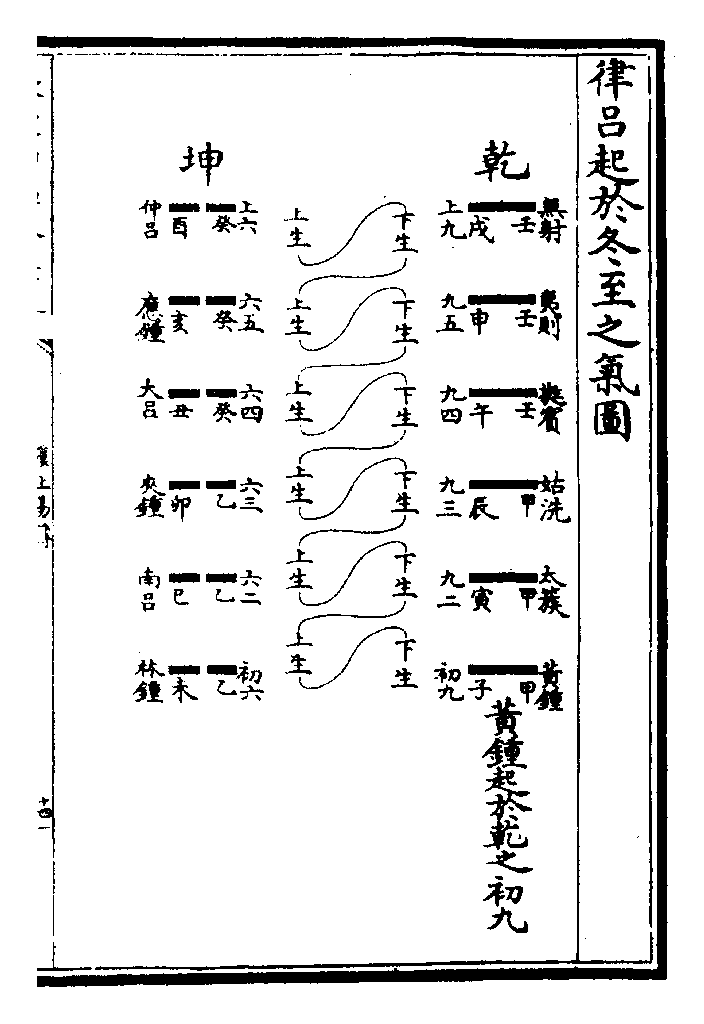 律呂起於冬至之氣圖
乾
無射 壬 戌 上九
夷則 壬 申 九五
蕤賓 壬 午 九四
姑洗 甲 辰 九三
太蔟 甲 寅 九二
黃鍾 甲 子 初九
黃鍾起於乾之初九
下生 上生
下生 上生
下生 上生
下生 上生
下生 上生
下生 上生
坤
上六 癸 酉 仲呂
六五 癸 亥 應鍾
六四 癸 丑 大呂
六三 乙 卯 夾鍾
六二 乙 巳 南呂
初六 乙 未 林鍾
十四